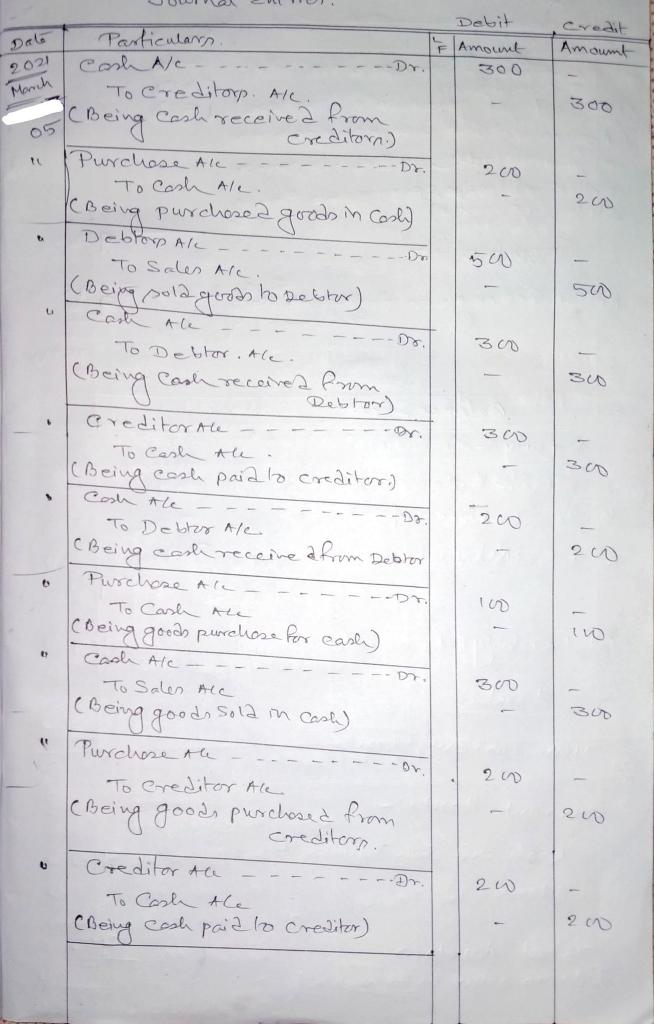 Journal Entries.
Debit Credit
Date Particulars. L F Amount Amount
2021 Cash A/c - - - - - - - - Dr. 300 -
March To Creditors. A/c. - 300
(Being Cash received from
05 Creditors.)
" Purchase A/c - - - - - - - - Dr. 200 -
To Cash A/c. - 200
(Being purchased goods in Cash)
" Debtors A/c - - - - - - - - Dr 500 -
To Sales A/c. - 500
(Being sold goods to Debtor)
" Cash A/c - - - - - - - - Dr. 300 -
To Debtor. A/c. - 300
(Being Cash received from
Debtor)
" Creditor A/c - - - - - - - - Dr. 300 -
To Cash A/c. - 300
(Being cash paid to creditor.)
" Cash A/c - - - - - - - - Dr. 200 -
To Debtor A/c. - 200
(Being cash receive d from Debtor
" Purchase A/c - - - - - - - - Dr. 100 -
To Cash A/c - 100
(Being goods purchase for cash)
" Cash A/c - - - - - - - - Dr. 300 -
To Sales A/c - 300
(Being goods Sold in Cash)
" Purchase A/c - - - - - - - - Dr. 200 -
To Creditor A/c - 200
(Being goods purchased from
Creditors.
" Creditor A/c - - - - - - - - Dr. 200 -
To Cash A/c - 200
(Being cash paid to Creditor)